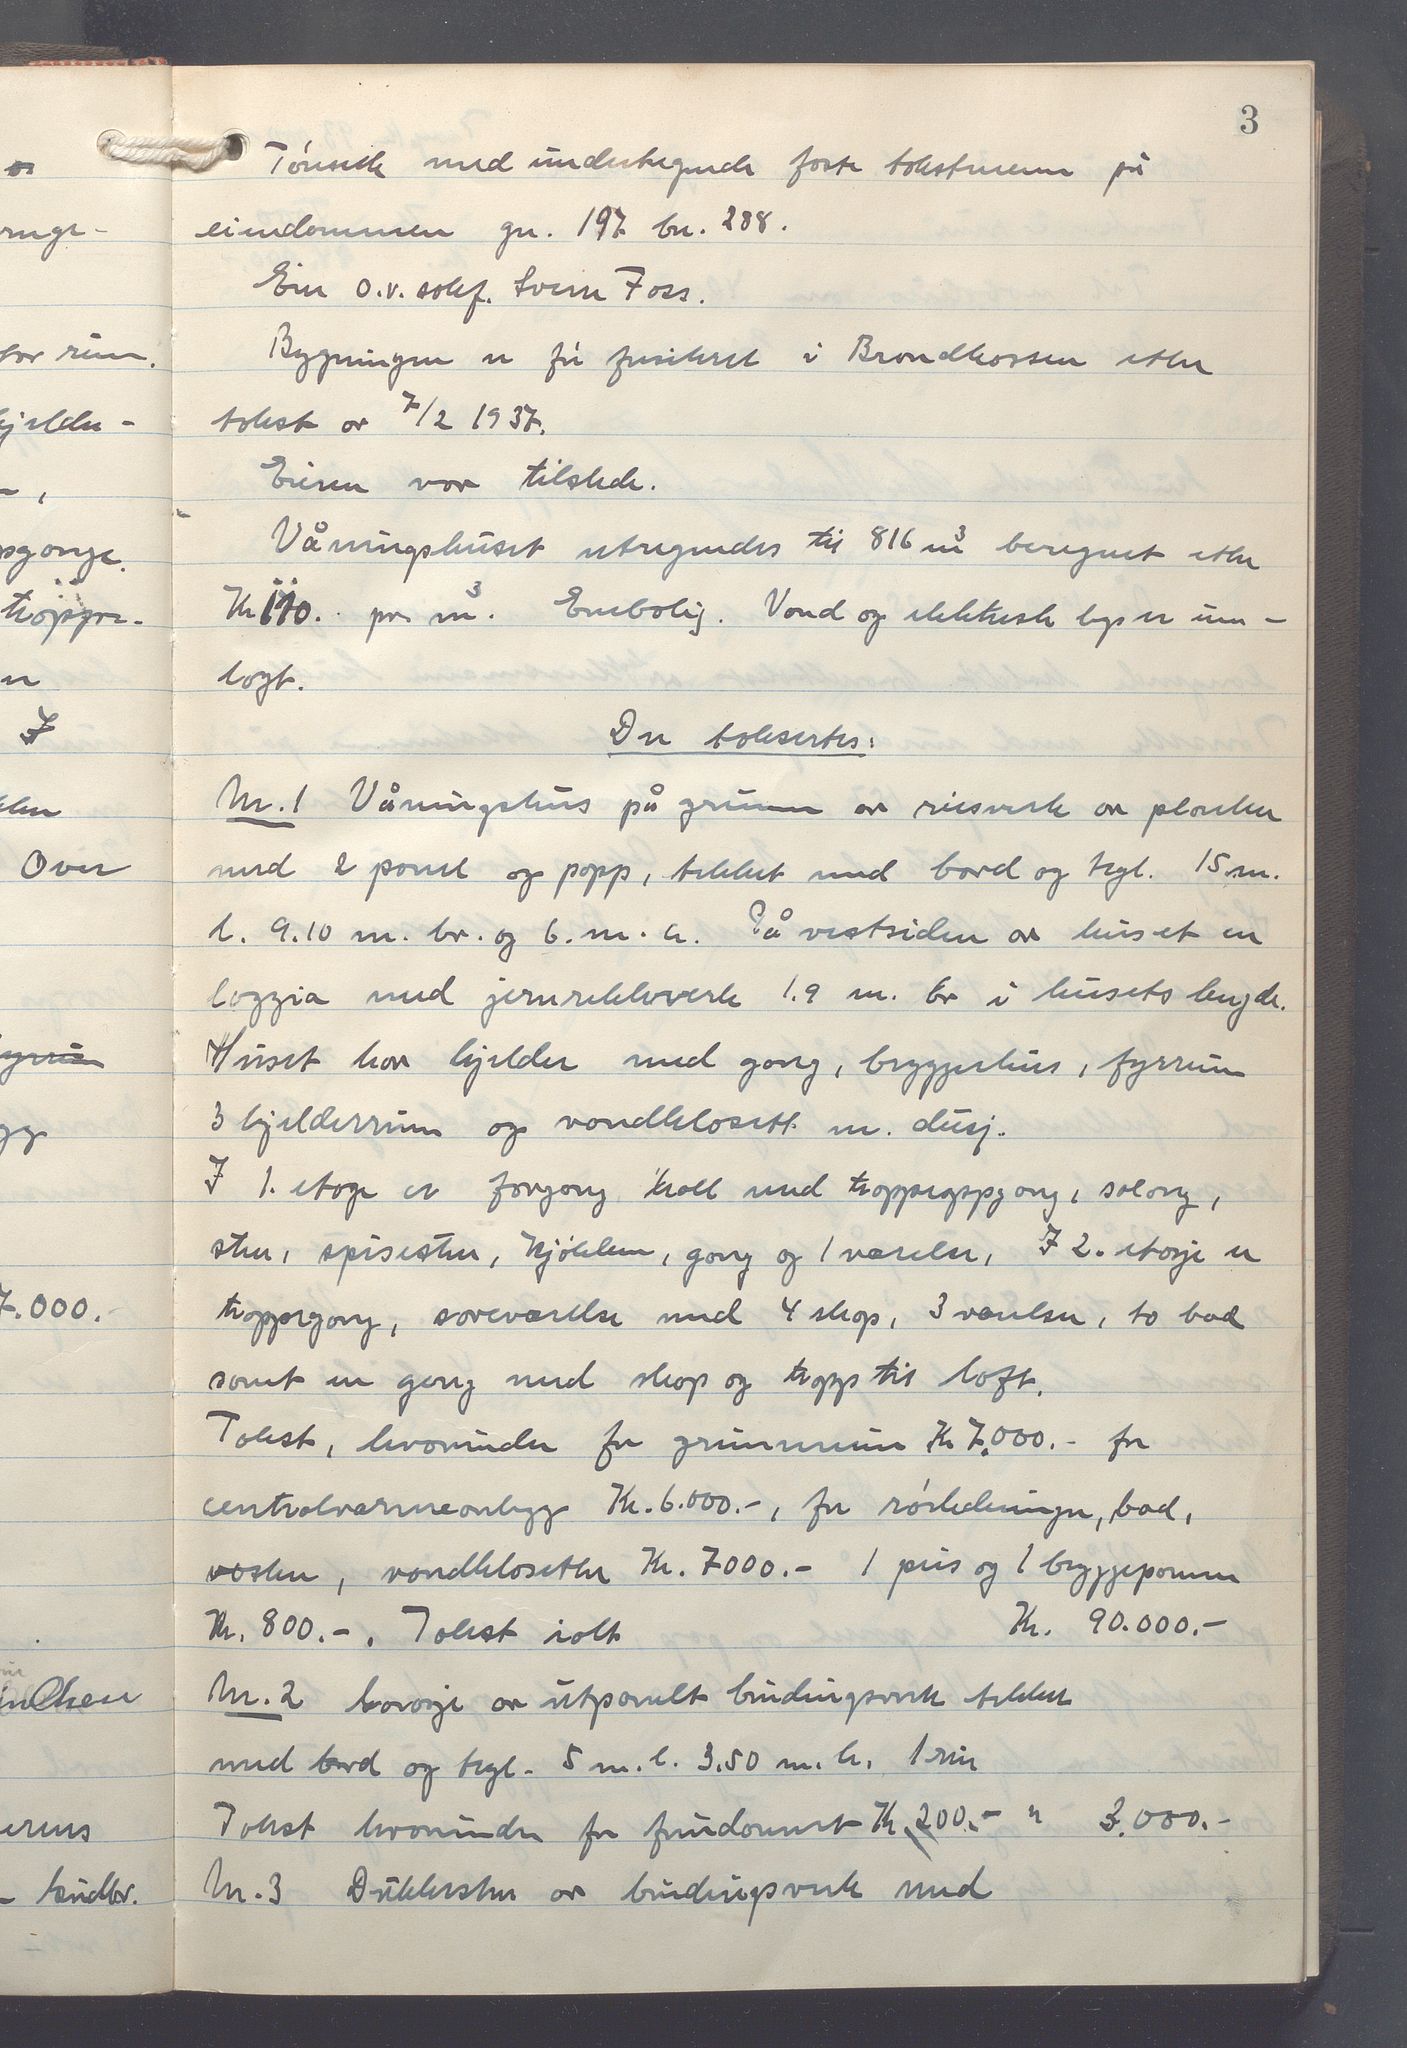 3
Tönseth med undertegnede faste takstmenn på
eiendommen gn. 197 bn. 288.
Eier o.r. sakf. Svein Foss.
Bygningen er før forsikret i Brandkassen etter
takst av 7/2 1937.
Eieren var tilstede.
Våningshuset utregnedes til 816 m³ beregnet etter
Kr 110. pr. m³. Enebolig. Vand og elektrisk lys er inn-
lagt.
Der takseertes:
Nr. 1 Våningshus på grunn av reisverk av planker
med 2 panel og papp, tekket med bord og tegl. 15 m.
l. 9.10 m. br. og 6. m. h. På vestsiden av huset en
loggia med jernrekkverk 1.9 m. br i husets lengde.
Huset har kjelder med gang, bryggerhus, fyrrum
3 kjelderrum og vandklosett m. dusj.
I 1. etage er forgang hall med trappeoppgang, salong,
stue, spisestue, kjøkken, gang og 1 værelse, I 2. etasje er
trappegang, soveværelse med 4 skap, 3 værelser, to bad
samt en gang med skap og trapp til loft.
Takst, hvorunder for grunnmur Kr 7.000.- for
centralvarmeanlegg Kr. 6.000.-, for rørledninger, bad,
vasker, vandklosetter Kr. 7000.- 1 peis og 1 bryggepanne
Kr. 800.-. Takst ialt Kr. 90.000.-
Nr. 2 Garasje av utpanelt bindingsverk tekket
med bord og tegl. 5 m. l. 3.50 m. h. 1 rum
Takst hvorunder for fundament Kr 200.- " 3.000.-
Nr. 3 Dukkestue av bindingsverk med
for rum.
kjelder-
pgange.
trappe-
Over
7.000.-